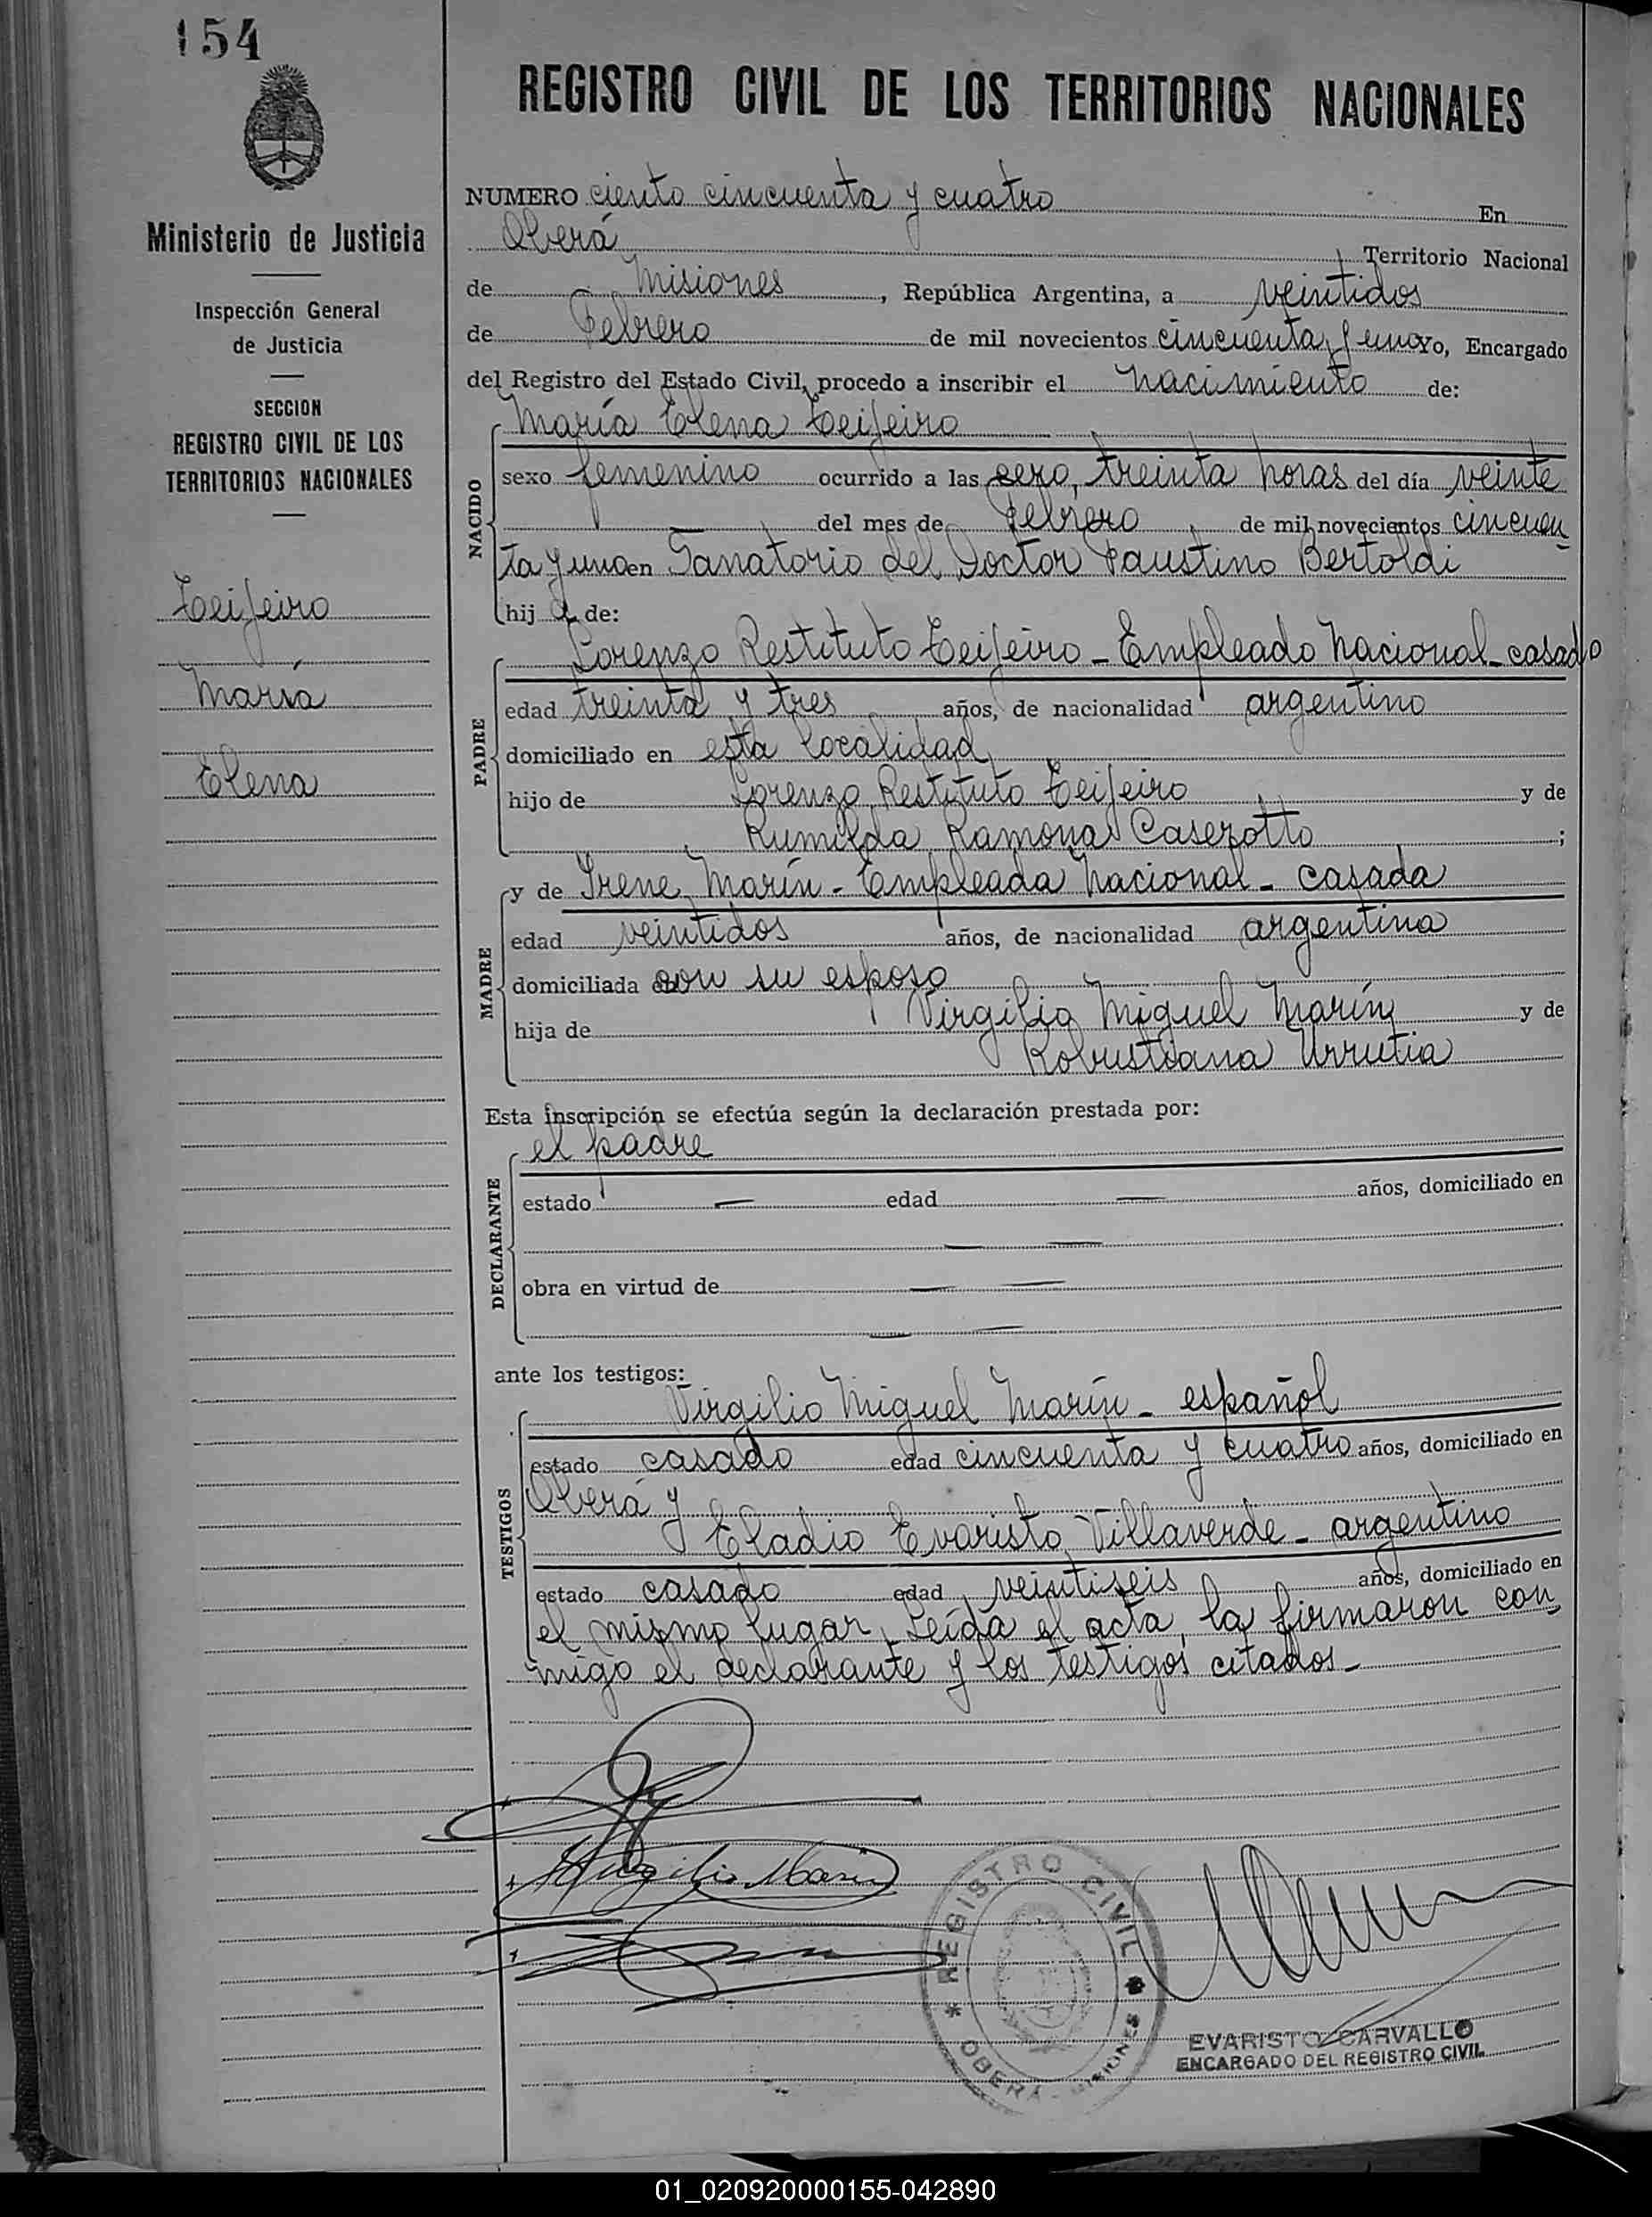 154
REGISTRO CIVIL DE LOS TERRITORIOS NACIONALES
Ministerio de Justicia
Inspección General
de Justicia
SECCION
REGISTRO CIVIL DE LOS
TERRITORIOS NACIONALES
Teijeiro
María
Elena
NUMERO ciento cincuenta y cuatro En
Oberá Territorio Nacional
de Misiones, República Argentina, a veintidos
de Febrero de mil novecientos cincuenta y uno Yo, Encargado
del Registro del Estado Civil, procedo a inscribir el nacimiento de:
NACIDO
María Elena Teijeiro
sexo femenino ocurrido a las cero, treinta horas del día veinte
— del mes de Febrero de mil novecientos cincuen
ta y uno en Sanatorio del Doctor Faustino Bertoldi
hija de:
PADRE
Lorenzo Restituto Teijeiro - Empleado Nacional - casado
edad treinta y tres años, de nacionalidad argentino
domiciliado en esta localidad
hijo de Lorenzo Restituto Teijeiro y de
Rumilda Ramona Caserotto;
MADRE
y de Irene Marín - Empleada Nacional - casada
edad veintidos años, de nacionalidad argentina
domiciliada con su esposo
hija de Virgilio Miguel Marín y de
Robustiana Urrutia
Esta inscripción se efectúa según la declaración prestada por:
DECLARANTE
el padre
estado — edad — años, domiciliado en
— —
obra en virtud de — —
— —
ante los testigos:
TESTIGOS
Virgilio Miguel Marín - español
estado casado edad cincuenta y cuatro años, domiciliado en
Oberá y
Eladio Evaristo Villaverde - argentino
estado casado edad veintiseis años, domiciliado en
el mismo lugar. Leída el acta, la firmaron con
migo el declarante y los testigos citados -
Virgilio Marin
REGISTRO CIVIL
* OBERÁ - MISIONES *
EVARISTO CARVALLO
ENCARGADO DEL REGISTRO CIVIL
01_020920000155-042890